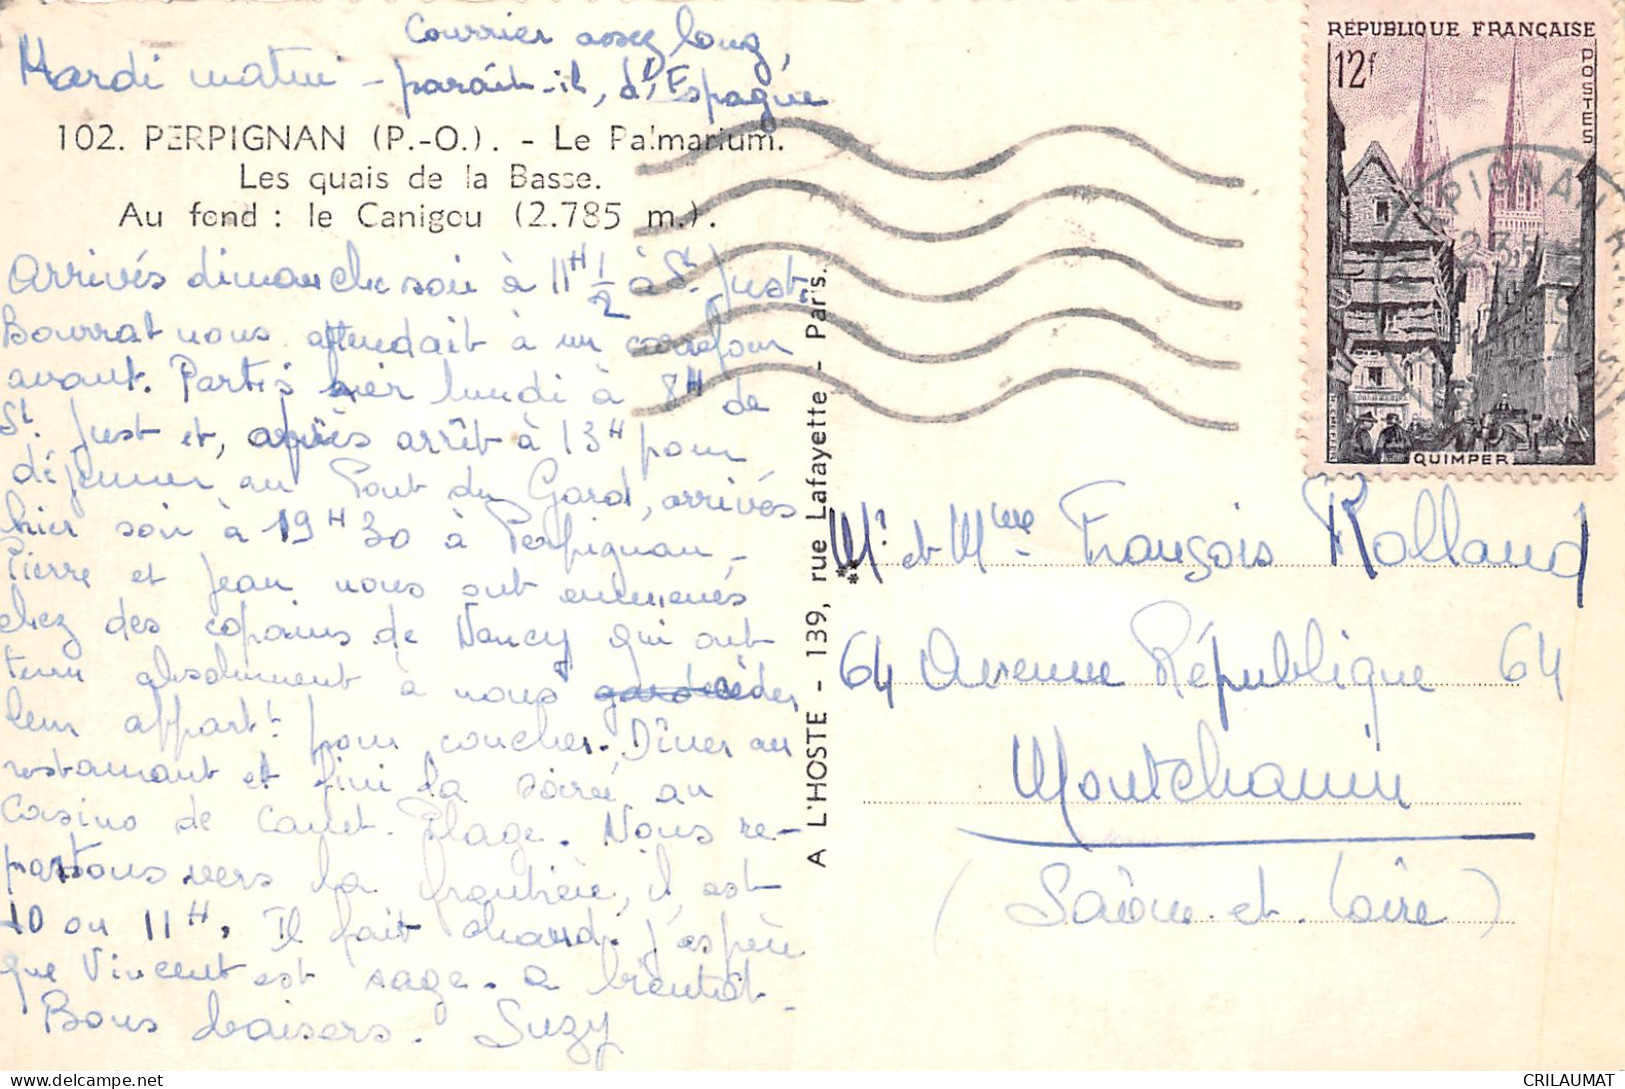 Courrier assez long,
Mardi matin - paraît-il, d'Espagne
102. PERPIGNAN (P.-O.). - Le Palmarium.
Les quais de la Basse.
Au fond : le Canigou (2.785 m.).
Arrivés dimanche soir à 11H 1/2 à St. Just.
Bourrat nous attendait à un carrefour
avant. Partis hier lundi à 8H de
St. Just et, après arrêt à 13H pour
déjeuner au Pont du Gard, arrivés
hier soir à 19H30 à Perpignan -
Pierre et Jean nous ont emmenés
chez des copains de Nancy qui ont
tenu absolument à nous céder
leur appart! pour coucher. Dîner au
restaurant et fini la soirée au
Casino de Canet-Plage. Nous re-
partons vers la frontière, il est
10 ou 11H. Il fait chaud. J'espère
que Vincent est sage. A bientôt -
Bons baisers. Suzy
A L'HOSTE - 139, rue Lafayette - Paris.
RÉPUBLIQUE FRANÇAISE
12f
POSTES
QUIMPER
PERPIGNAN
Mr. et Mme François Rolland
64 Avenue République 64
Montchanin
(Saône-et-Loire)
CRILAUMAT